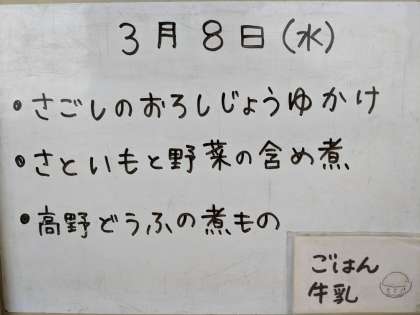 3月8日(水)
・さごしのおろしじょうゆかけ
・さといもと野菜の含め煮
・高野どうふの煮もの
ごはん
牛乳